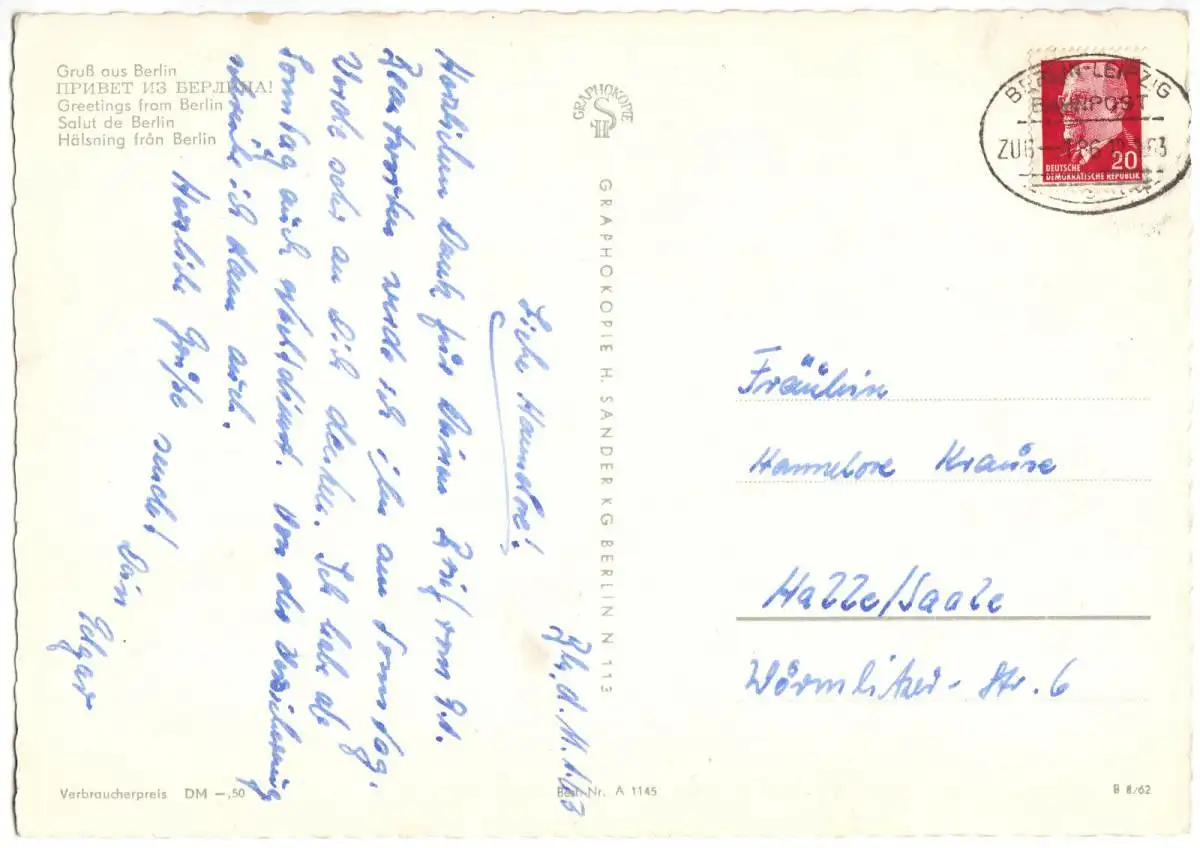 Gruß aus Berlin
ПРИВЕТ ИЗ БЕРЛИНА!
Greetings from Berlin
Salut de Berlin
Hälsning från Berlin
GRAPHOKOPIE
H S
GRAPHOKOPIE H. SANDER KG BERLIN N 113
BERLIN-LEIPZIG
BAHNPOST
ZUG
20
DEUTSCHE
DEMOKRATISCHE REPUBLIK
Bln, d. 11.1.63
Liebe Hannelore!
Herzlichen Dank für Deinen Brief vom 9.1.
Beantworten werde ich ihn am Sonntag.
Werde aber an Dich denken. Ich habe ab
Sonntag auch Nachtdienst. Von der Versicherung
schreibe ich dann auch.
Herzliche Grüße sendet
Dein
Edgar
Fräulein
Hannelore Krause
Halle/Saale
Wörmlitzer-Str. 6
Verbraucherpreis DM —,50
Best.-Nr. A 1145
B 8/62